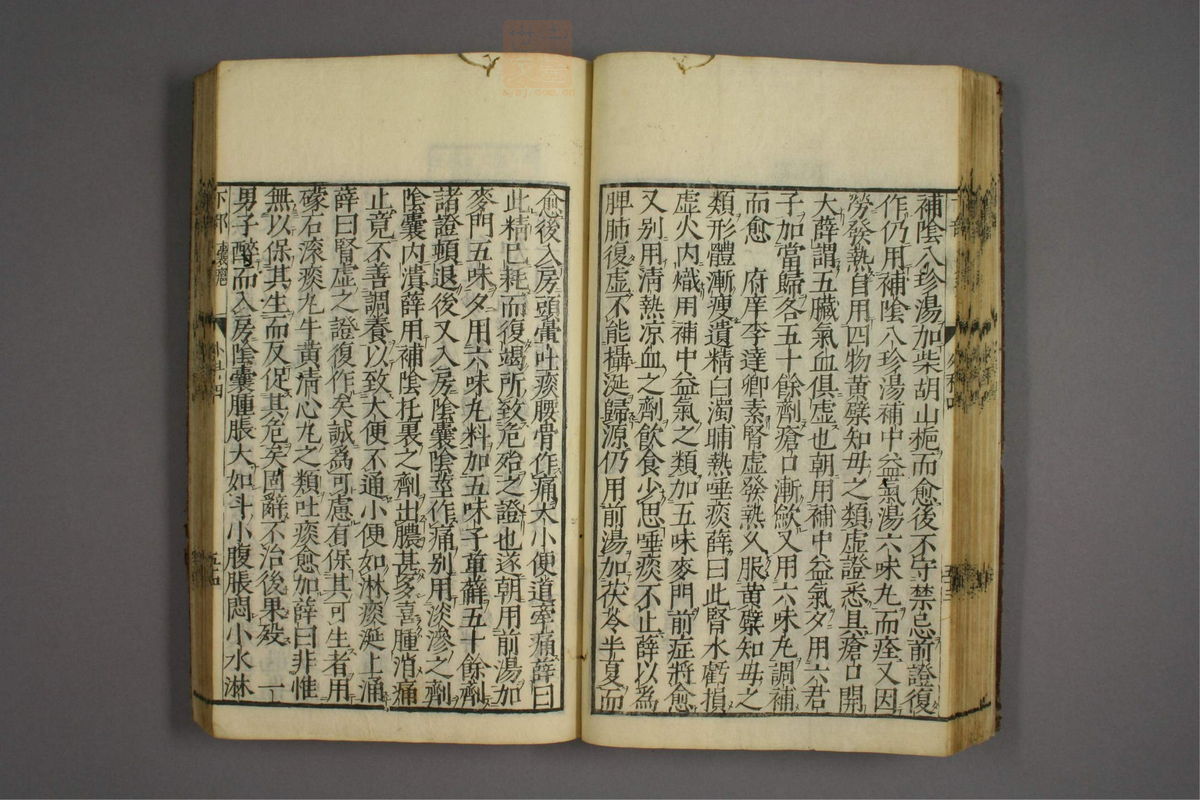 補陰八珍湯加柴胡山梔而愈後不守禁忌前證復
作仍用補陰八珍湯補中益氣湯六味丸而痊又因
勞發熱自用四物黄蘗知毋之類虛證悉具瘡口開
大薛謂五臟氣血俱虛也朝用補中益氣夕用六君
子加當歸各五十餘劑瘡口漸斂又用六味丸調補
而愈　府庠李達卿素腎虛發熱久服黄蘗知毋之
類形體漸瘦遺精白濁晡熱唾痰薛曰此腎水虧損
虛火内熾用補中益氣之類加五味麥門前症將愈
又别用清熱凉血之劑飲食少思唾痰不止薛以爲
脾肺復虛不能攝涎歸源仍用前湯加茯苓半夏而
愈後入房頭暈吐痰腰骨作痛大小便道牽痛薛曰
此精已耗而復竭所致危殆之證也遂朝用前湯加
麥門五味夕用六味丸料加五味子萆薢五十餘劑
諸證頓退後又入房陰囊陰莖作痛别用淡滲之劑
陰囊内潰薛用補陰托裏之劑出膿甚多喜腫消痛
止竟不善調養以致大便不通小便如淋痰涎上涌
薛曰腎虛之證復作矣誠爲可慮有保其可生者用
礞石滚痰丸牛黄清心丸之類吐痰愈加薛曰非惟
無以保其生而反促其危矣固辭不治後果殁　一
男子醉而入房陰囊腫脹大如斗小腹脹悶小水淋
下部
囊癰